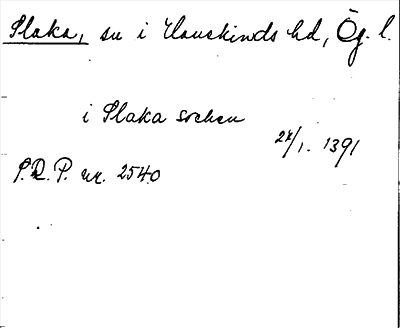 Slaka, sn i Hanekinds hd, Ög. l.
i Slaka sochen
24/1. 1391
S.R.P. nr. 2540